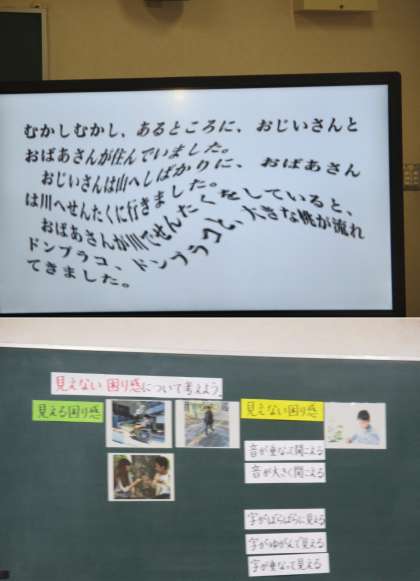 むかしむかし、あるところに、おじいさんと
おばあさんが住んでいました。
おじいさんは山へしばかりに、おばあさん
は川へせんたくに行きました。
おばあさんが川でせんたくをしていると、
ドンブラコ、ドンブラコと、大きな桃が流れ
てきました。
見えない困り感について考えよう。
見える困り感
見えない困り感
音が重なって聞こえる
音が大きく聞こえる
字がばらばらに見える
字がゆがんで見える
字が重なって見える